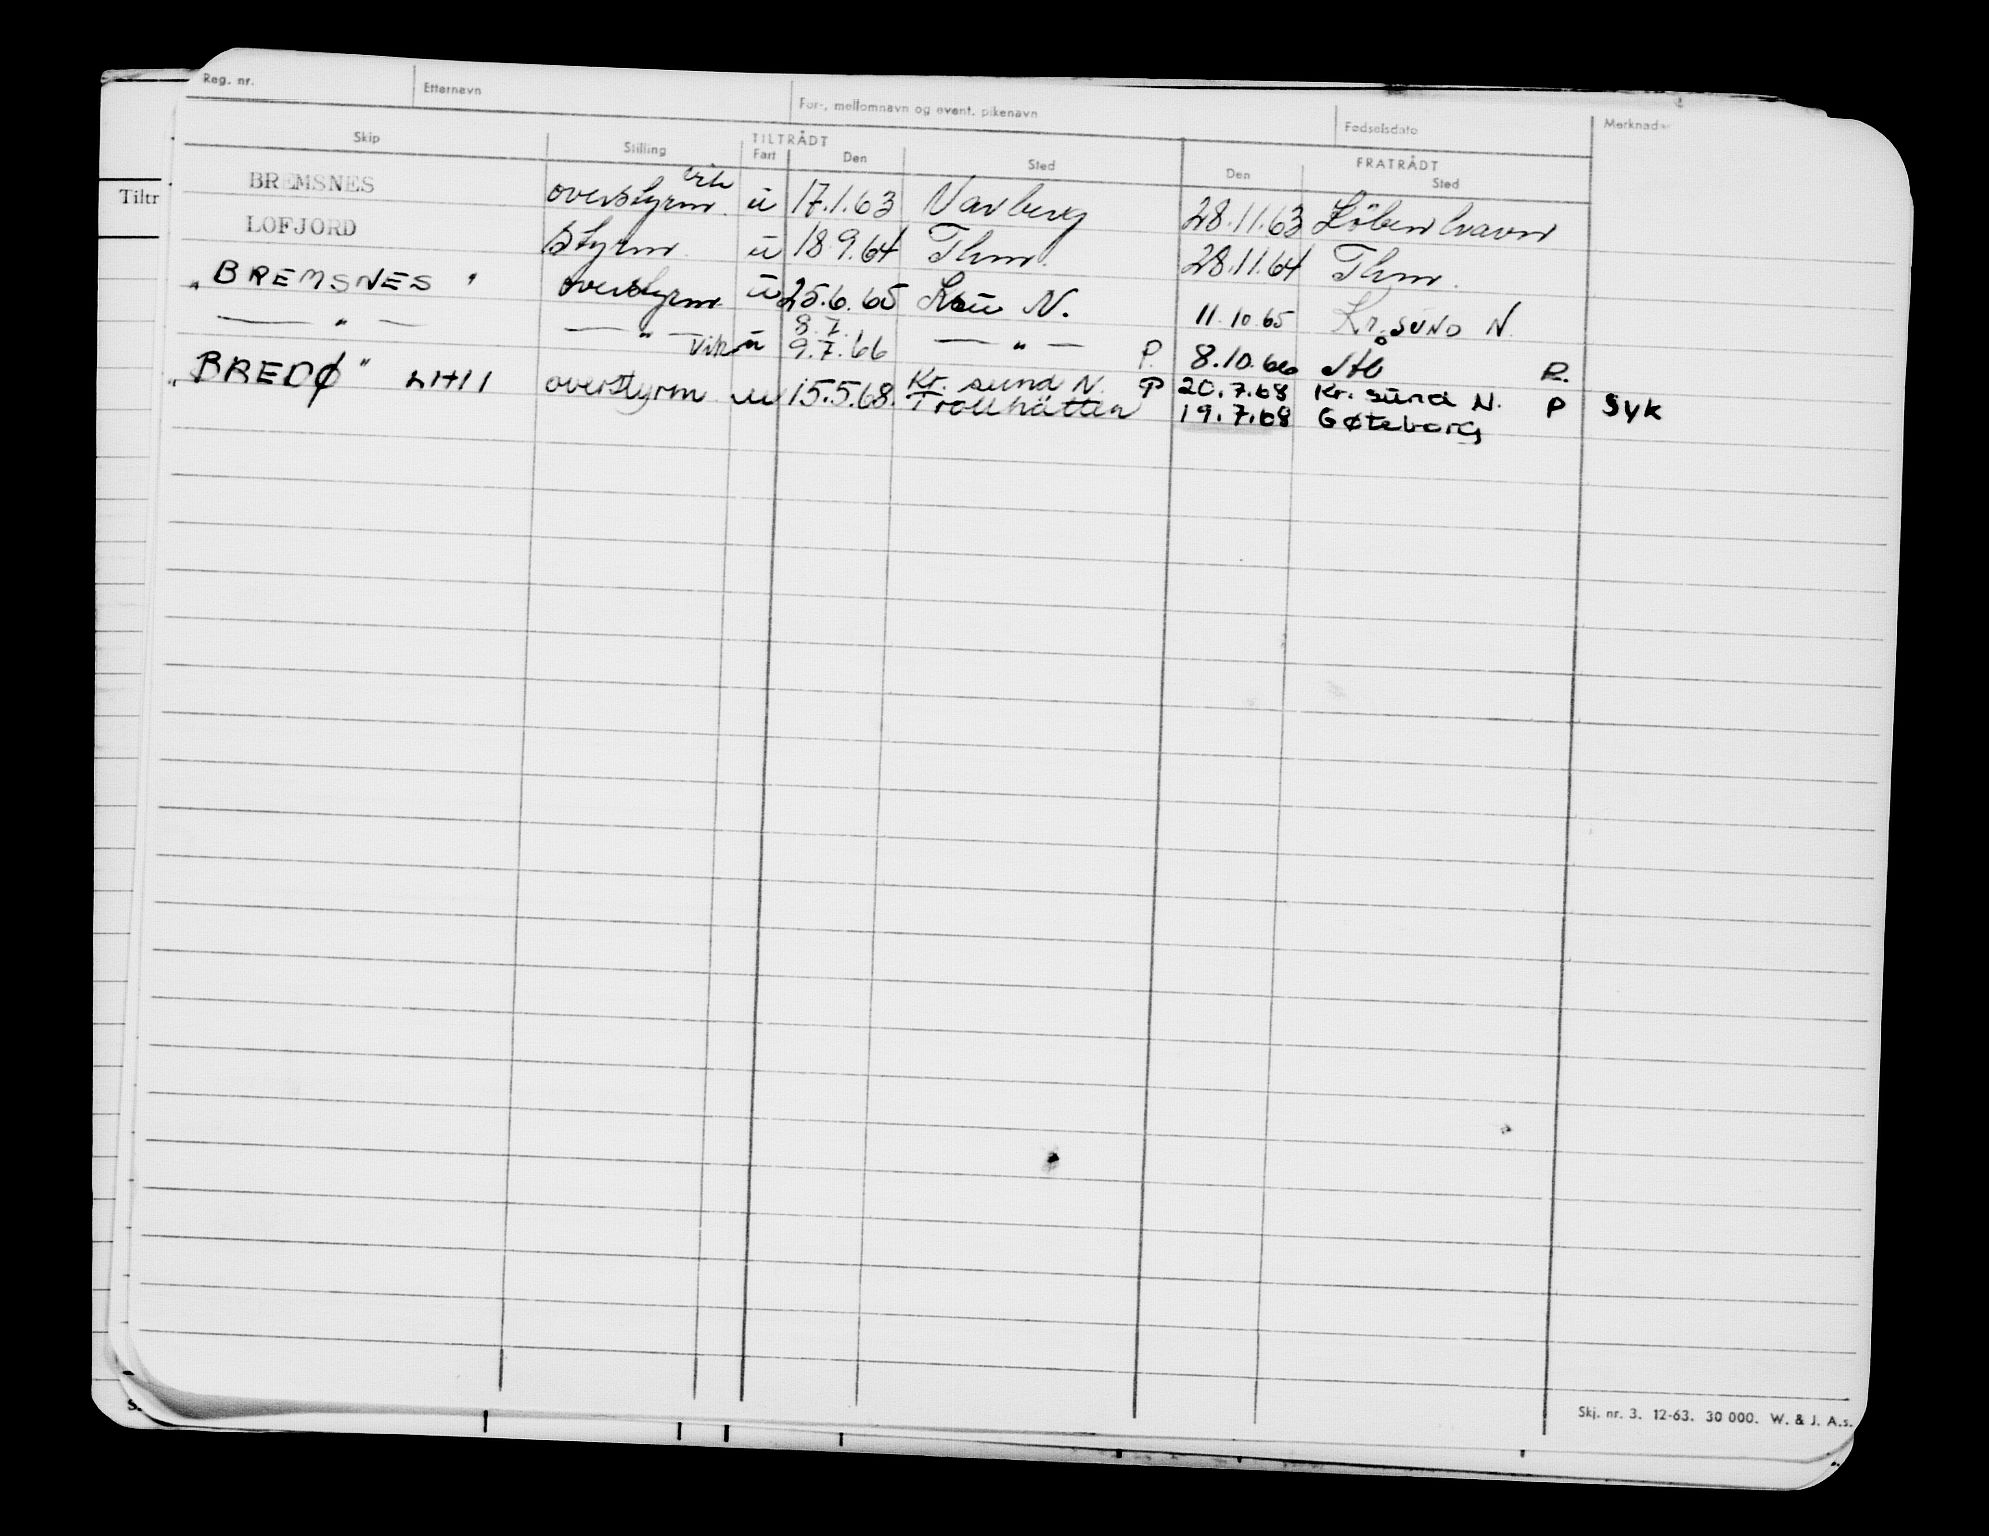 Reg. nr. Etternavn For-, mellomnavn og event. pikenavn Fødselsdato Merknader
TILTRÅDT FRATRÅDT
Skip Stilling Fart Den Sted Den Sted
Tiltr
vik
BREMSNES overstyrm. u 17.1.63 Varberg 28.11.63 Köbenhavn
LOFJORD Styrm. u 18.9.64 Thm. 28.11.64 Thm.
"BREMSNES" overstyrm. u 25.6.65 Ksu N. 11.10.65 Kr.SUND N.
8.7.
— " — — " — Vik u 9.7.66 — " — P. 8.10.66 P.
Kr. sund N. P 20.7.68 Kr. sund N. P Syk
"BREDØ" LHII overstyrm u 15.5.68. Trollhätten 19.7.68 Gøteborg
Skj. nr. 3. 12-63. 30 000. W. & J. A.s.
S.